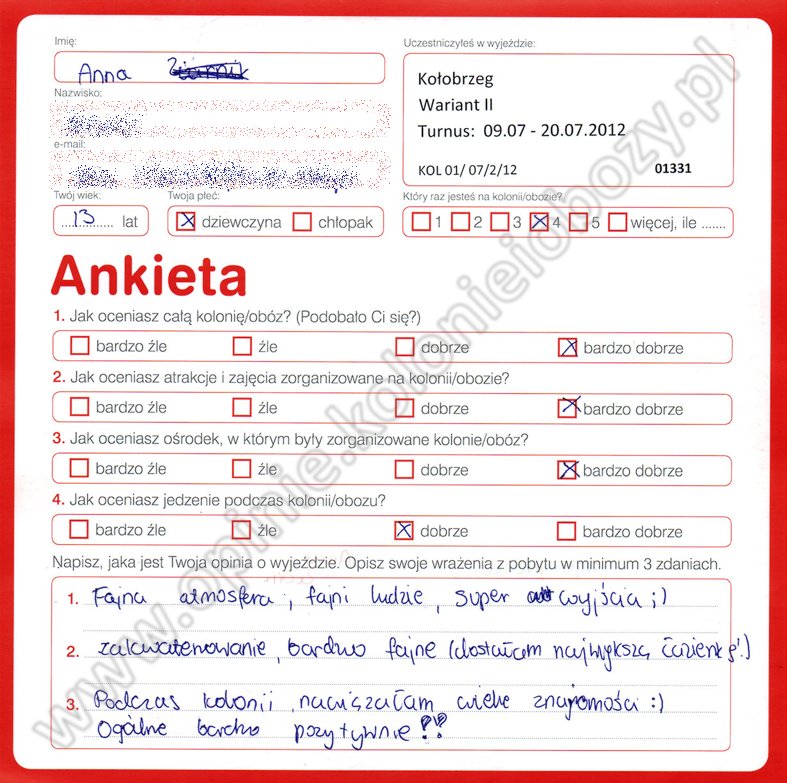 Imię:
Uczestniczyłeś w wyjeździe:
Anna
Kołobrzeg
Wariant II
Turnus: 09.07 - 20.07.2012
KOL 01/ 07/2/12 01331
Nazwisko:
e-mail:
Twój wiek: Twoja płeć: Który raz jesteś na kolonii/obozie?
13 lat dziewczyna chłopak 1 2 3 4 5 więcej, ile .......
Ankieta
1. Jak oceniasz całą kolonię/obóz? (Podobało Ci się?)
bardzo źle źle dobrze bardzo dobrze
2. Jak oceniasz atrakcje i zajęcia zorganizowane na kolonii/obozie?
bardzo źle źle dobrze bardzo dobrze
3. Jak oceniasz ośrodek, w którym były zorganizowane kolonie/obóz?
bardzo źle źle dobrze bardzo dobrze
4. Jak oceniasz jedzenie podczas kolonii/obozu?
bardzo źle źle dobrze bardzo dobrze
Napisz, jaka jest Twoja opinia o wyjeździe. Opisz swoje wrażenia z pobytu w minimum 3 zdaniach.
1. Fajna atmosfera, fajni ludzie, super wyjścia ;)
2. zakwaterowanie, bardzo fajne (dostałam największą łazienkę!)
3. Podczas kolonii nawiązałam wiele znajomości :)
Ogólne bardzo pozytywnie!!!
www.opinie.kolonieiobozy.pl